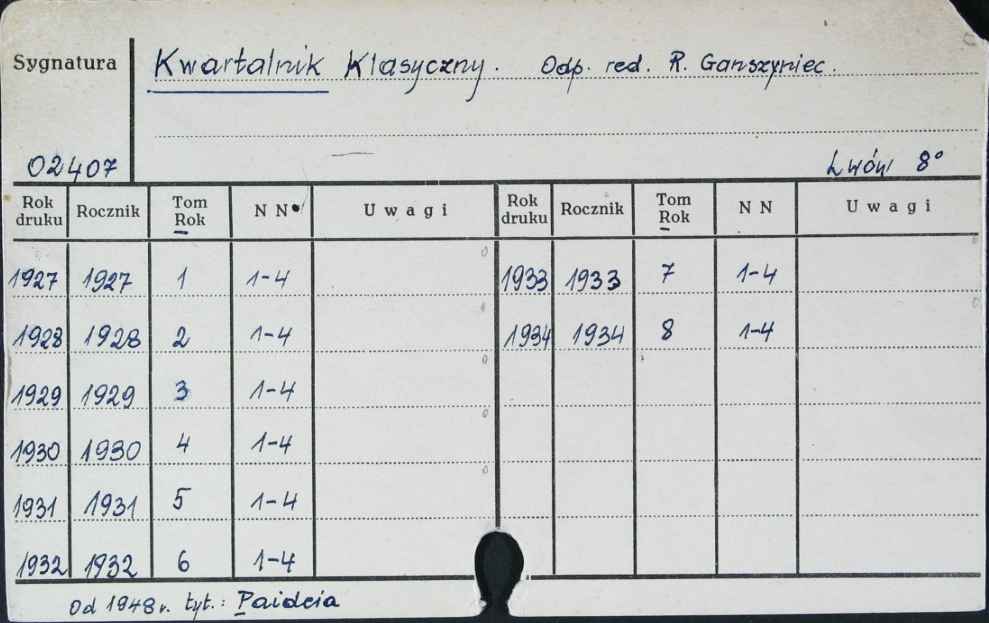 Sygnatura Kwartalnik Klasyczny. Odp. red. R. Ganszyniec.
02407 Lwów 8°
Rok druku Rocznik Tom Rok NN Uwagi Rok druku Rocznik Tom Rok NN Uwagi
1927 1927 1 1-4 1933 1933 7 1-4
1928 1928 2 1-4 1934 1934 8 1-4
1929 1929 3 1-4
1930 1930 4 1-4
1931 1931 5 1-4
1932 1932 6 1-4
Od 1948 r. tyt.: Paideia